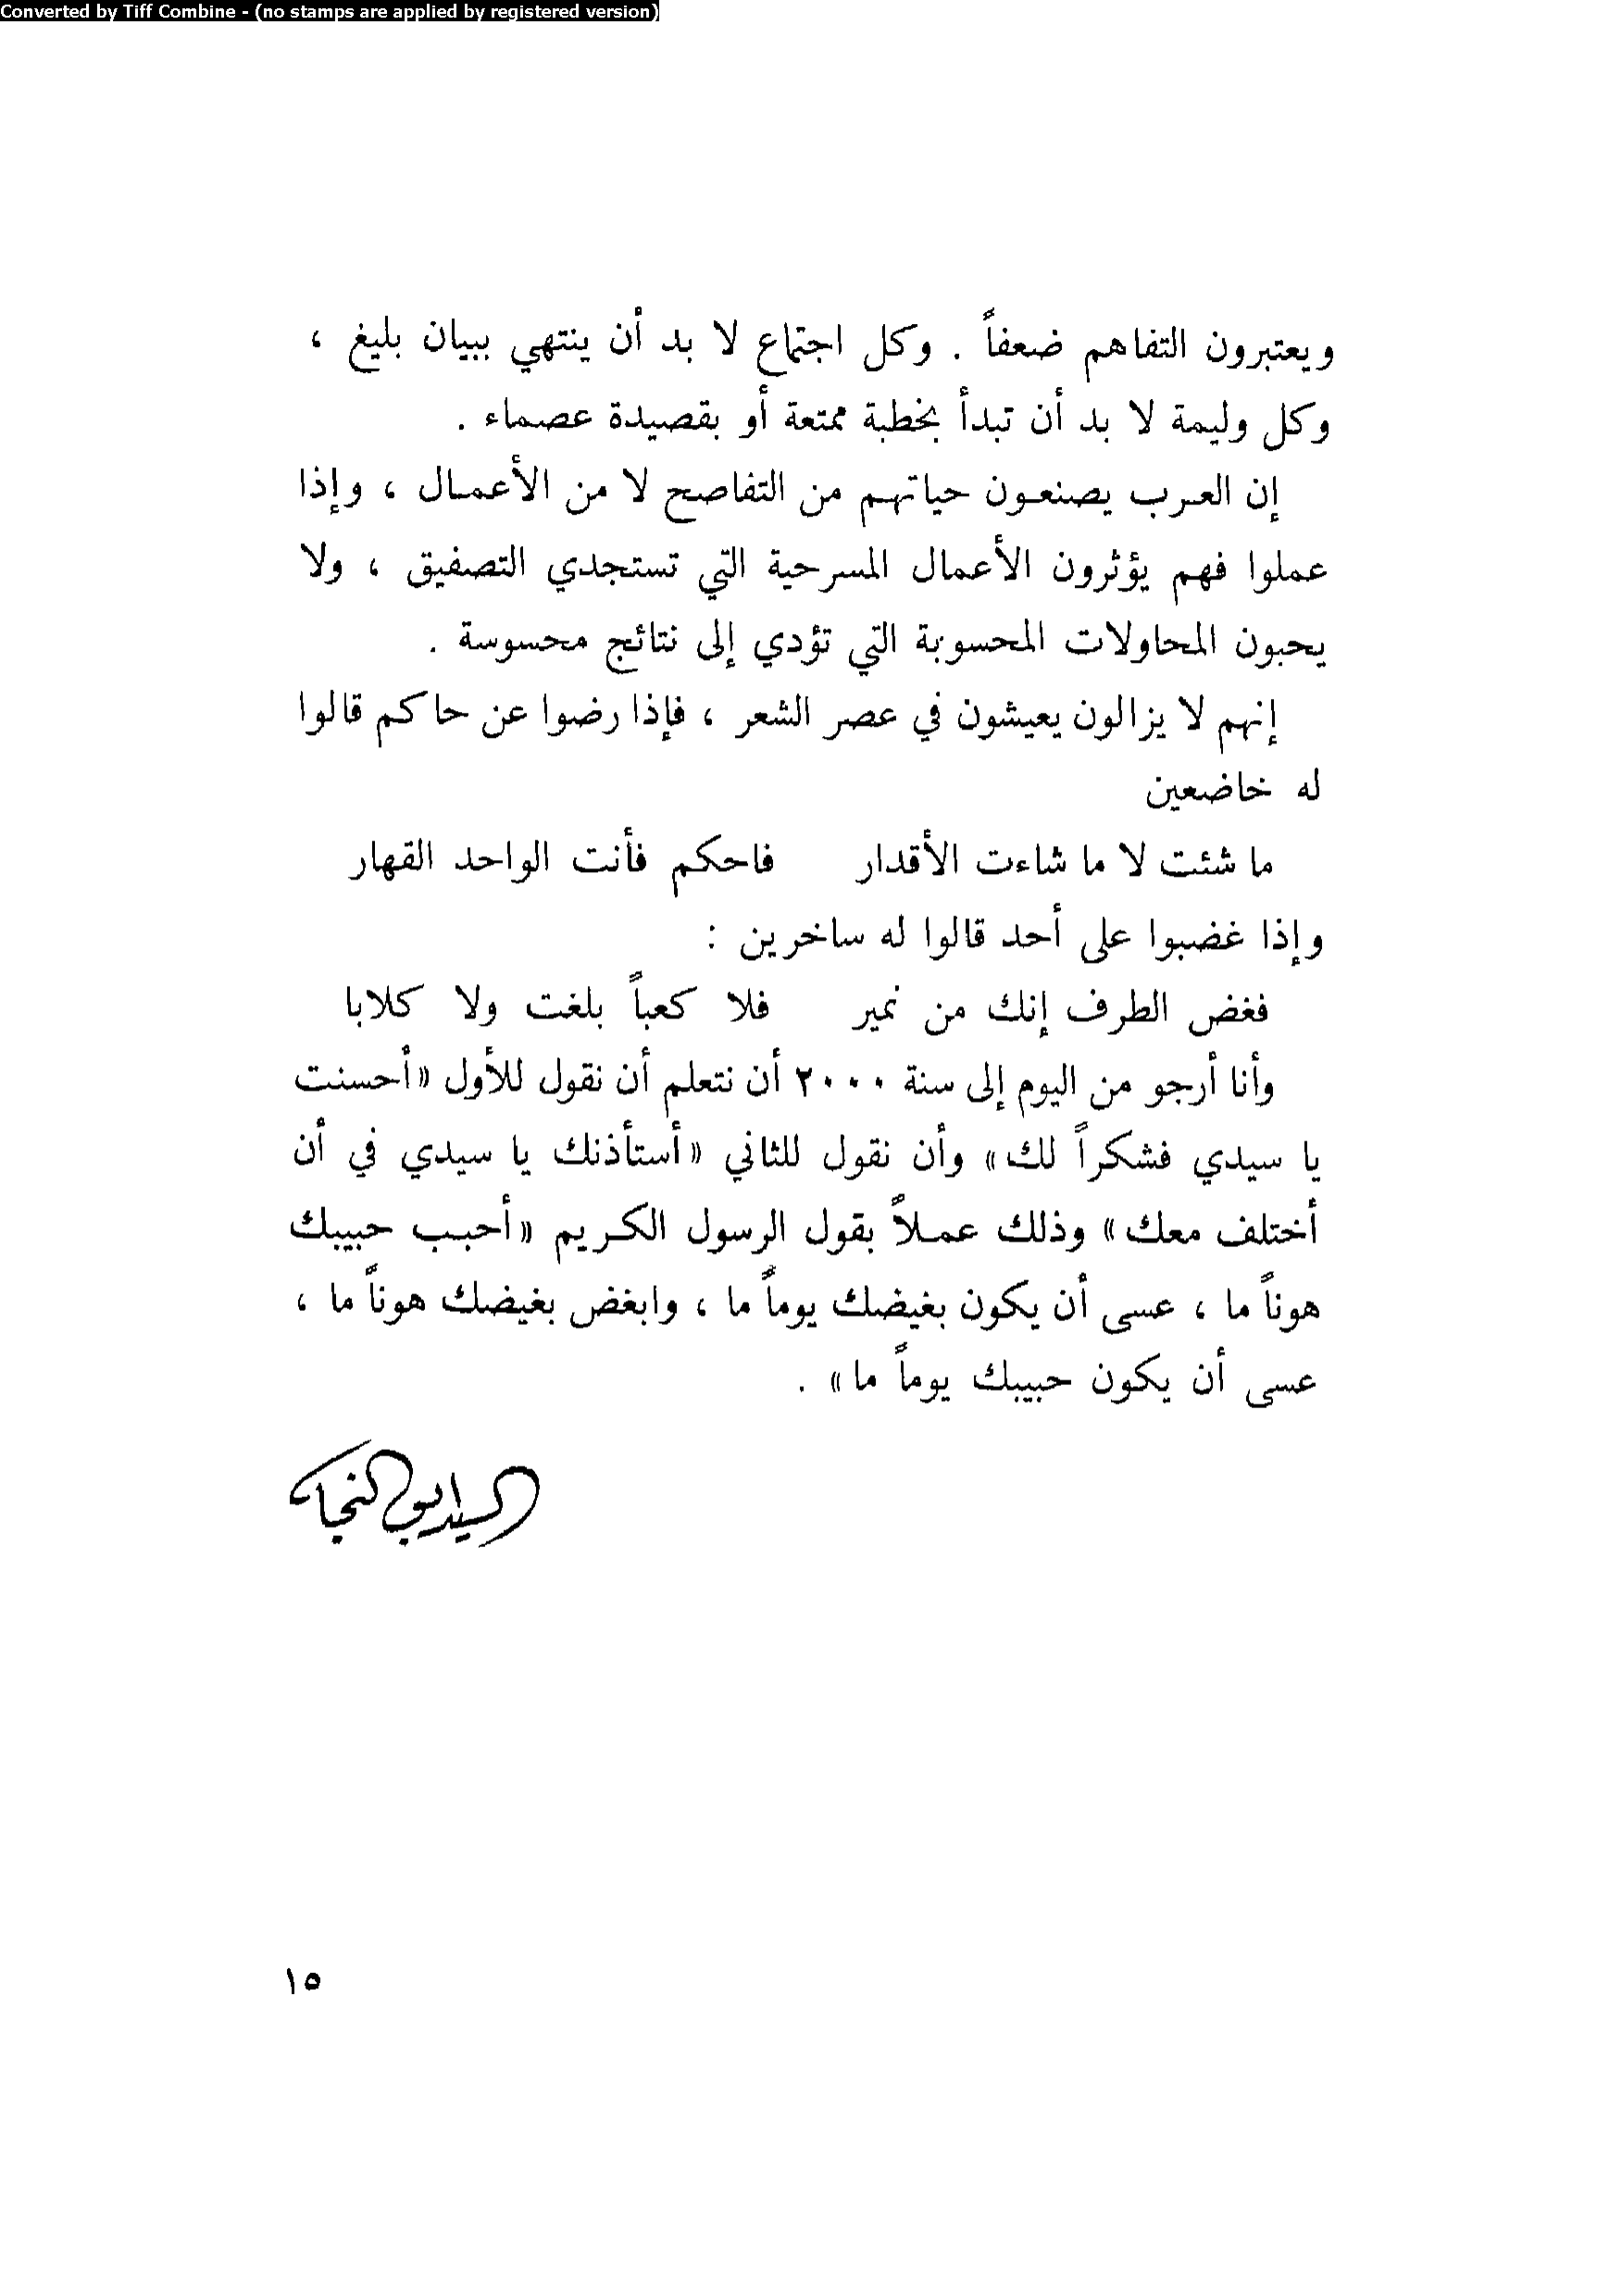 Converted by Tiff Combine - (no stamps are applied by registered version)
ويعتبرون التفاهم ضعفاً . وكل اجتماع لا بد أن ينتهي ببيان بليغ ،
وكل وليمة لا بد أن تبدأ بخطبة ممتعة أو بقصيدة عصماء .
إن العرب يصنعون حياتهم من التفاصح لا من الأعمال ، وإذا
عملوا فهم يؤثرون الأعمال المسرحية التي تستجدي التصفيق ، ولا
يحبون المحاولات المحسوبة التي تؤدي إلى نتائج محسوسة .
إنهم لا يزالون يعيشون في عصر الشعر ، فإذا رضوا عن حاكم قالوا
له خاضعين
ما شئت لا ما شاءت الأقدار فاحكم فأنت الواحد القهار
وإذا غضبوا على أحد قالوا له ساخرين :
فغض الطرف إنك من نمير فلا كعباً بلغت ولا كلابا
وأنا أرجو من اليوم إلى سنة ٢٠٠٠ أن نتعلم أن نقول للأول «أحسنت
يا سيدي فشكراً لك» وأن نقول للثاني «أستأذنك يا سيدي في أن
أختلف معك» وذلك عملاً بقول الرسول الكريم «أحبب حبيبك
هوناً ما ، عسى أن يكون بغيضك يوماً ما ، وابغض بغيضك هوناً ما ،
عسى أن يكون حبيبك يوماً ما» .
السيد أبو النجا
١٥